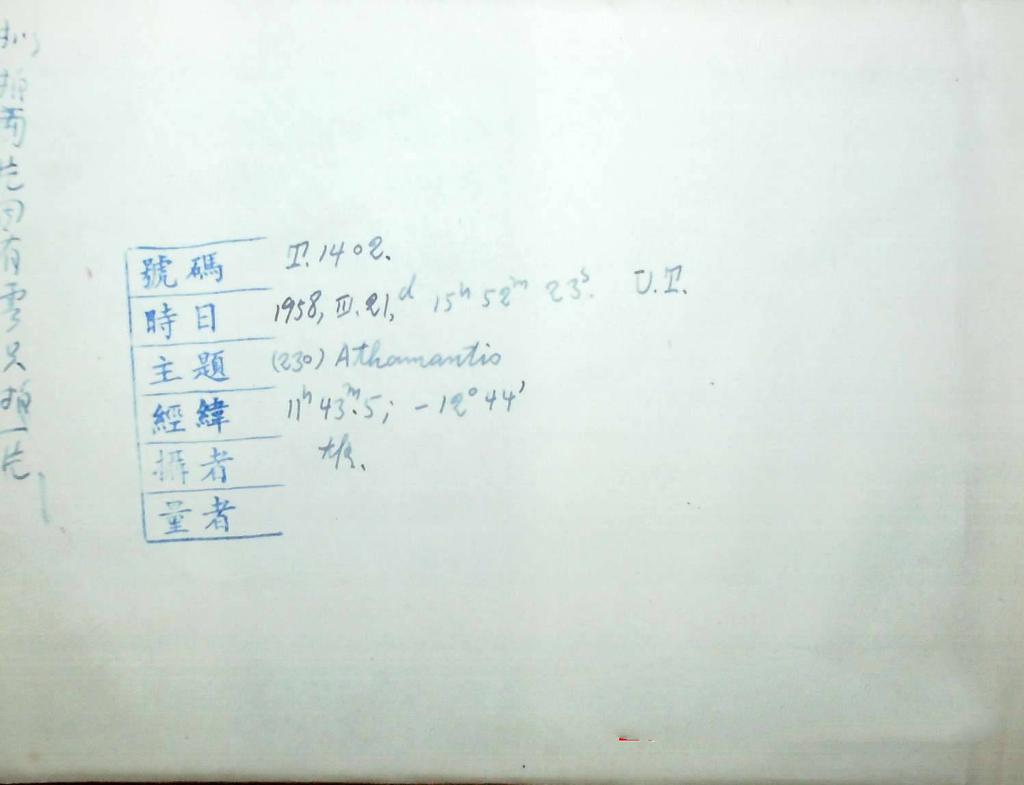 號碼 I.1402.
時日 1958, III.21,ᵈ 15ʰ 52ᵐ 23ˢ. U.T.
主題 (230) Athamantis
經緯 11ʰ 43ᵐ.5; -12° 44'
攝者
量者
拍兩片因有雲只拍一片